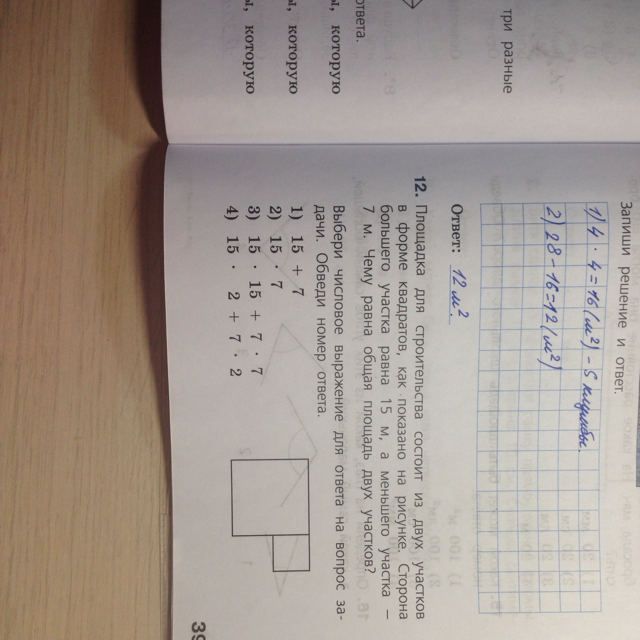 три разные
ответа.
ы, которую
ы, которую
ы, которую
Запиши решение и ответ.
1) 4 · 4 = 16 (м²) – S клумбы.
2) 28 – 16 = 12 (м²)
Ответ: 12 м².
12. Площадка для строительства состоит из двух участков
в форме квадратов, как показано на рисунке. Сторона
большего участка равна 15 м, а меньшего участка –
7 м. Чему равна общая площадь двух участков?
Выбери числовое выражение для ответа на вопрос за-
дачи. Обведи номер ответа.
1) 15 + 7
2) 15 · 7
3) 15 · 15 + 7 · 7
4) 15 · 2 + 7 · 2
39